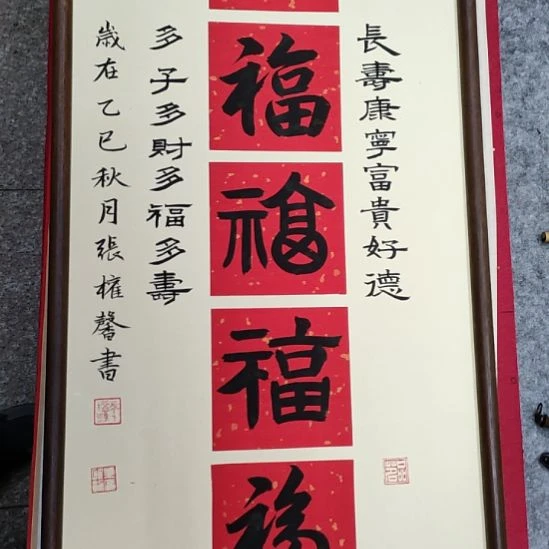 長壽康寧富貴好德
福
福
福
福
多子多財多福多壽
歲在乙巳秋月張權馨書